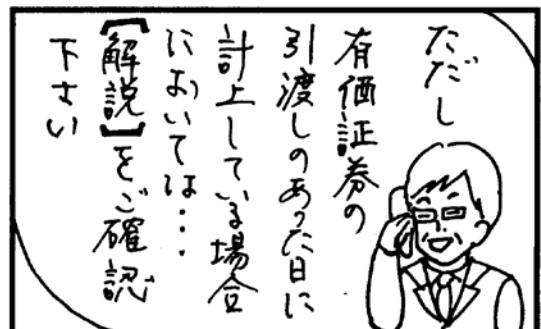 ただし
有価証券の
引渡しのあった日に
計上している場合
においては・・・
【解説】をご確認
下さい